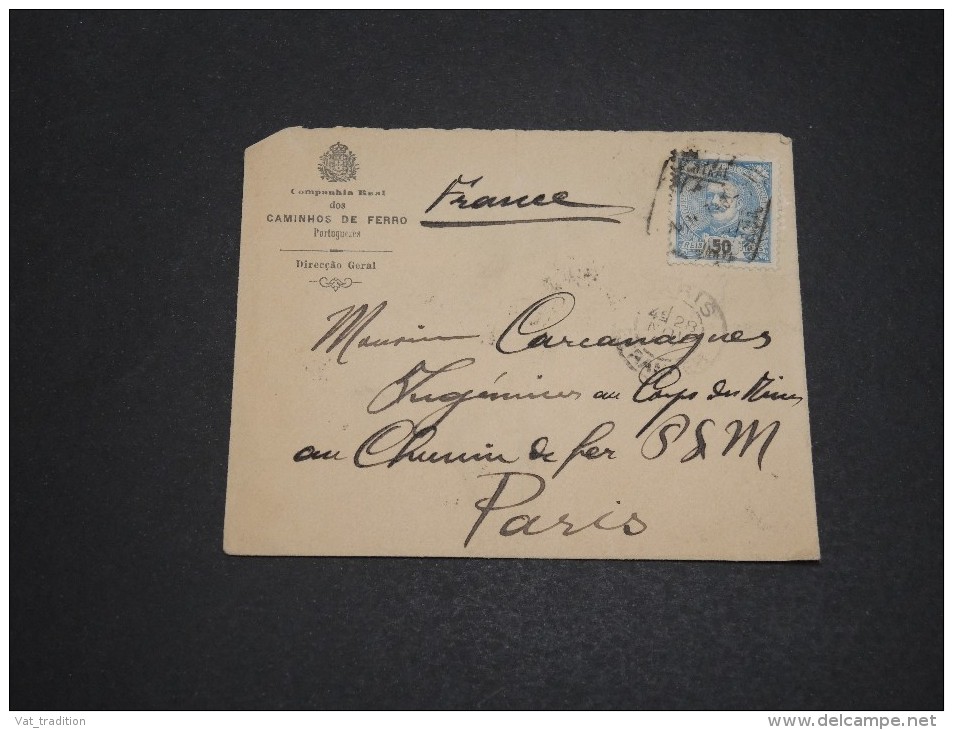 Companhia Real
dos
CAMINHOS DE FERRO
Portuguezes
Direcção Geral
France
50
CENTRAL
PARIS
Monsieur Carcanagues
Ingénieur au Corps des Mines
au Chemin de fer PLM
Paris
Vat_tradition
www.delcampe.net